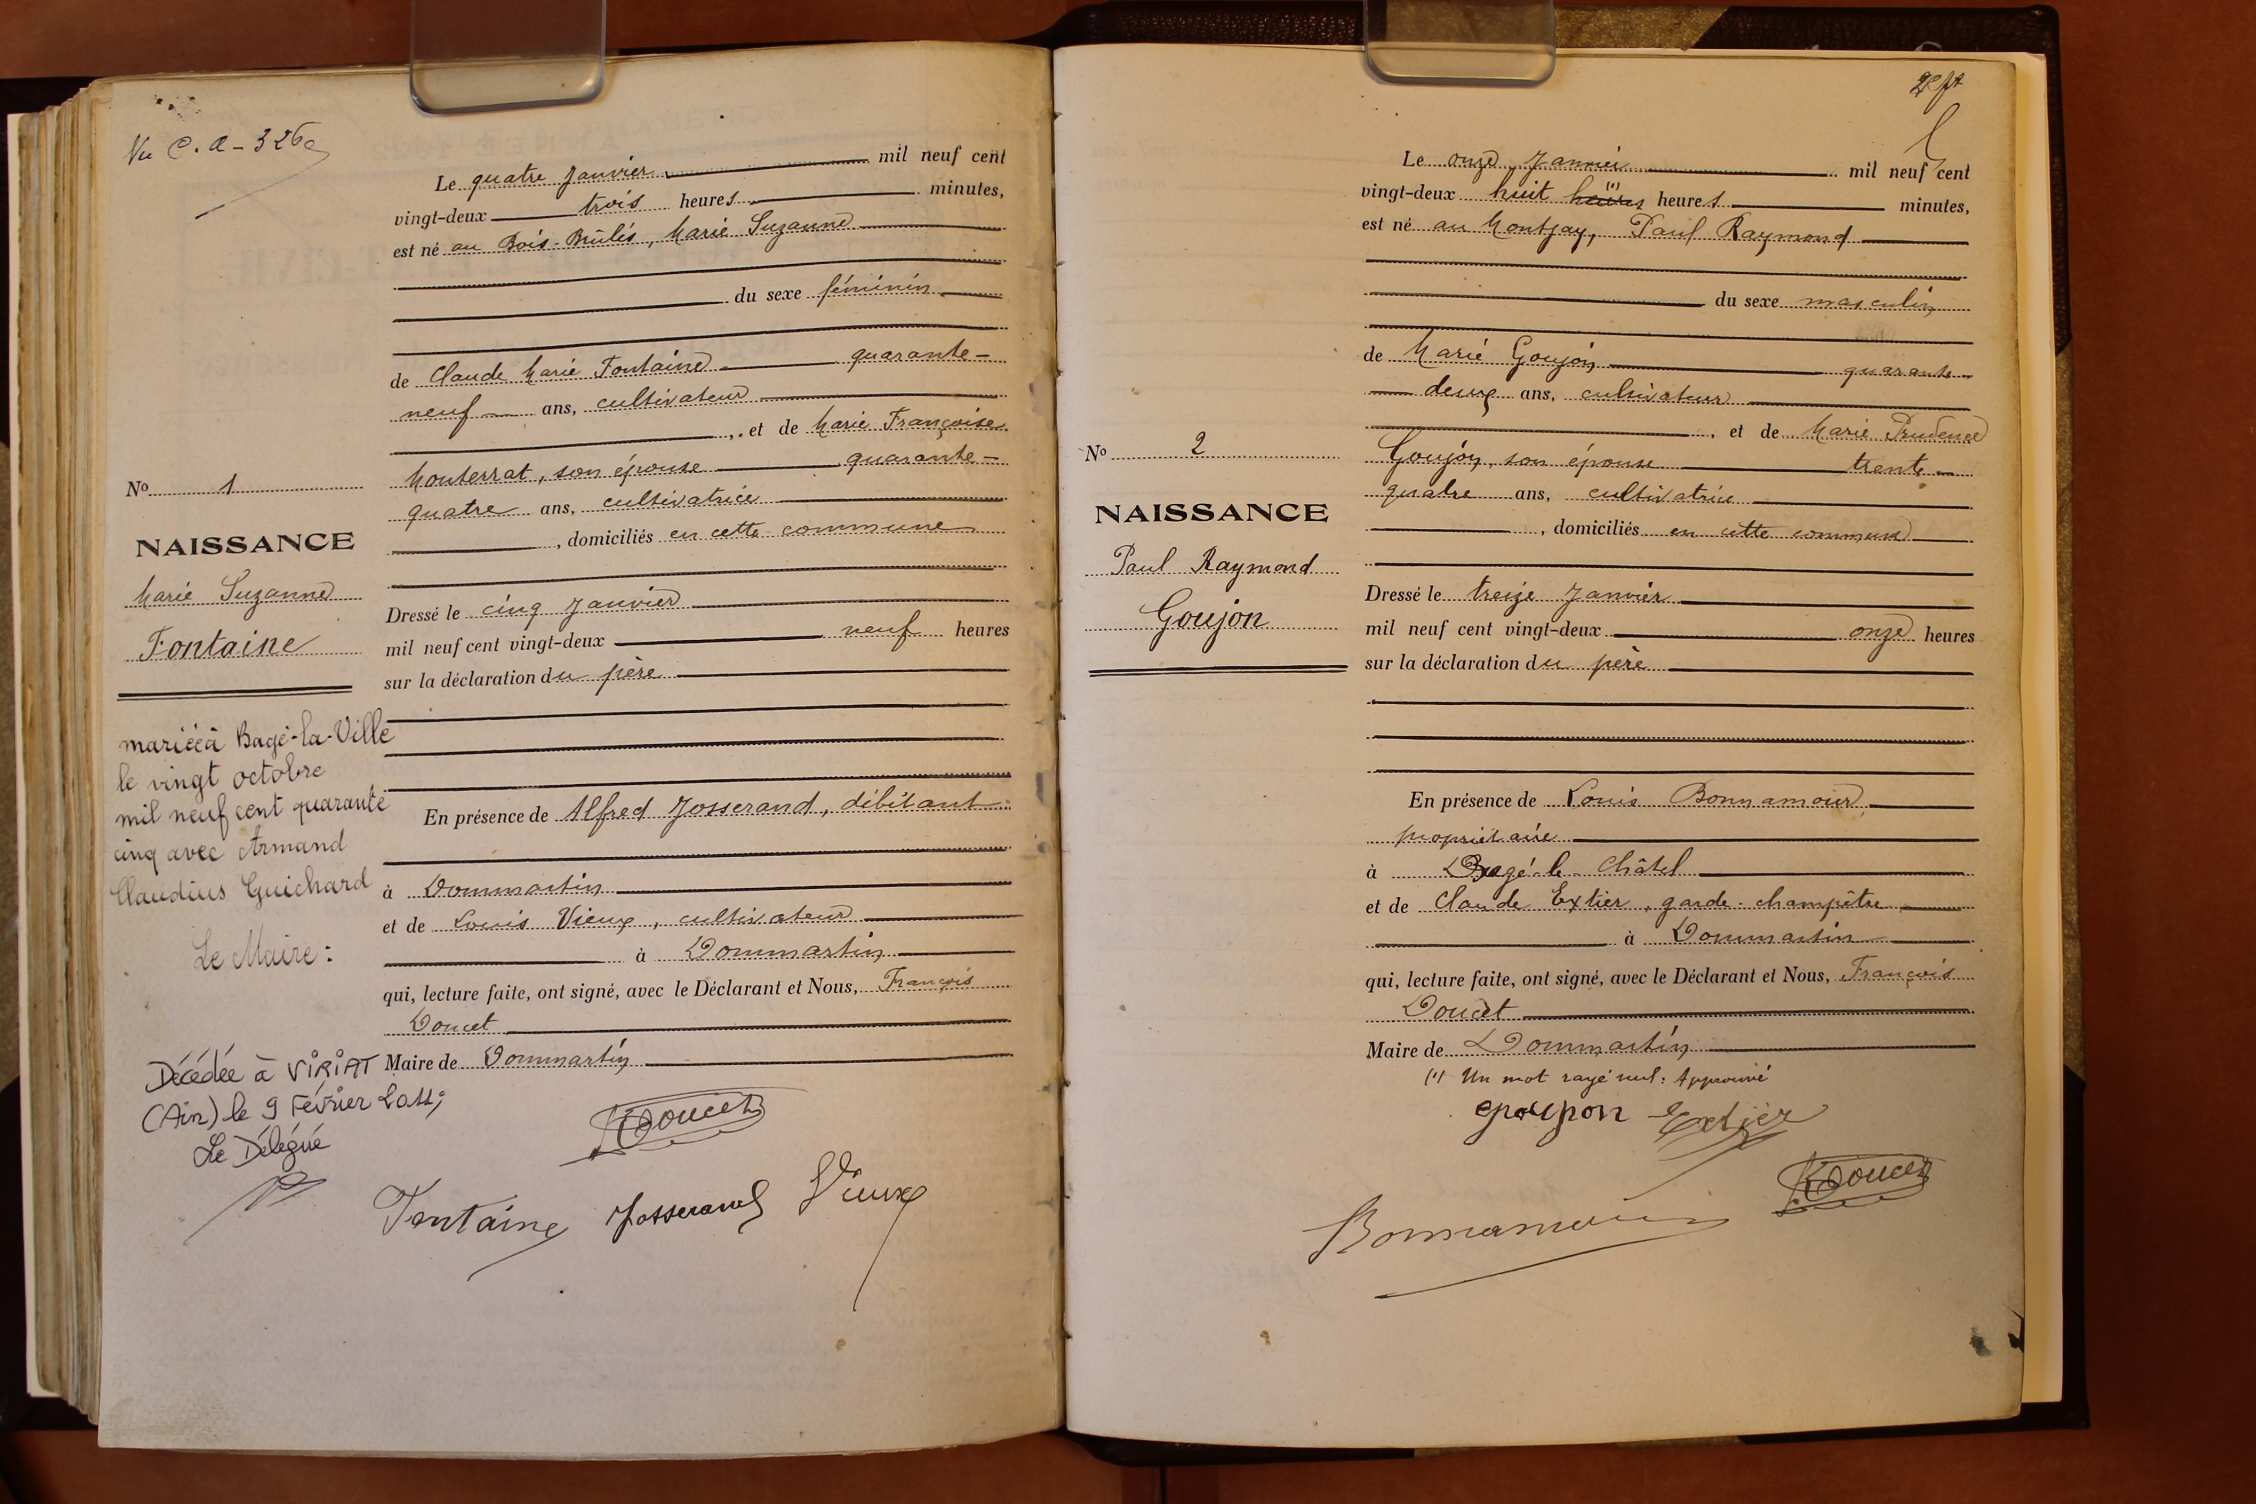 Vu C. a - 326
Le quatre Janvier mil neuf cent
vingt-deux trois heures minutes,
est né au Bois-Brûlés, Marie Suzanne
du sexe féminin
de Claude Marie Fontaine quarante-
neuf ans, cultivateur
, et de Marie Françoise
Monterrat, son épouse quarante-
quatre ans, cultivatrice
, domiciliés en cette commune
Dressé le cinq Janvier
mil neuf cent vingt-deux neuf heures
sur la déclaration du père
En présence de Alfred Josserand, débitant
à Dommartin
et de Louis Vieux, cultivateur
à Dommartin
qui, lecture faite, ont signé, avec le Déclarant et Nous, François
Doucet
Maire de Dommartin
Doucet
Fontaine Josserand Vieux
No 1
NAISSANCE
Marie Suzanne
Fontaine
mariée à Bagé-la-Ville
le vingt octobre
mil neuf cent quarante
cinq avec Armand
Claudius Guichard
Le Maire :
Décédée à VIRIAT
(Ain) le 9 Février 2011;
Le Délégué
Le onze Janvier mil neuf cent
vingt-deux huit heures (1) heures minutes,
est né au Montjay, Paul Raymond
du sexe masculin
de Marié Goujon quarante-
deux ans, cultivateur
, et de Marie Prudence
Goujon, son épouse trente-
quatre ans, cultivatrice
, domiciliés en cette commune
Dressé le treize Janvier
mil neuf cent vingt-deux onze heures
sur la déclaration du père
En présence de Louis Bonnamour
propriétaire
à Bagé-le-Châtel
et de Claude Extier, garde-champêtre
à Dommartin
qui, lecture faite, ont signé, avec le Déclarant et Nous, François
Doucet
Maire de Dommartin
(1) Un mot rayé nul : Approuvé
goujon Extier
Doucet
Bonnamour
No 2
NAISSANCE
Paul Raymond
Goujon